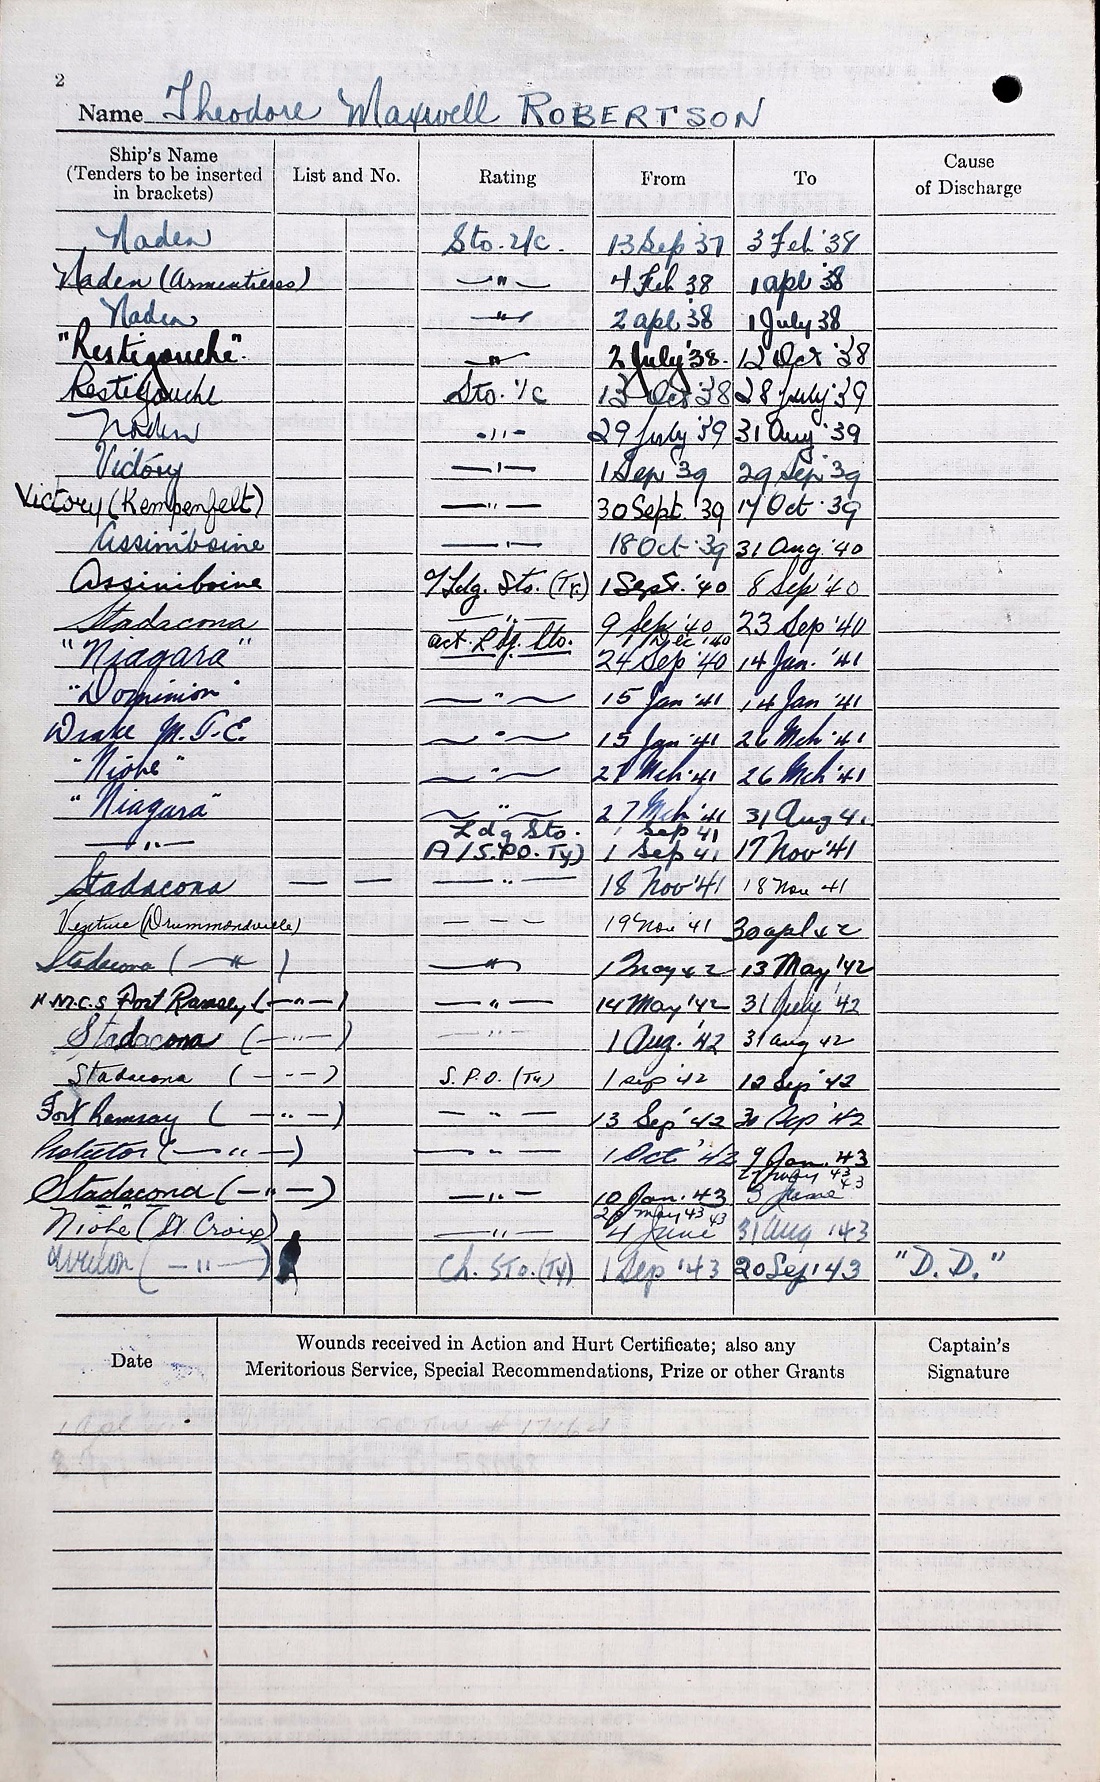 2
Name Theodore Maxwell ROBERTSON
Ship's Name (Tenders to be inserted in brackets) List and No. Rating From To Cause of Discharge
Naden Sto. 2/c. 13 Sep '37 3 Feb '38
Naden (Armentieres) — " — 4 Feb 38 1 apl '38
Naden — " — 2 apl '38 1 July 38
"Restigouche". — " — 2 July '38. 12 Oct '38
Restigouche Sto. 1/c 13 Oct '38 28 July '39
Naden - " - 29 July '39 31 Aug '39
Victory — " — 1 Sep 39 29 Sep 39
Victory (Kempenfelt) — " — 30 Sept. '39 17 Oct '39
Assiniboine — " — 18 Oct '39 31 Aug '40
Assiniboine A/Ldg. Sto. (Ty.) 1 Sept. '40 8 Sep '40
Stadacona — " — 9 Sep '40 23 Sep '40
act. Ldg. Sto. 1 Dec '40
"Niagara" 24 Sep '40 14 Jan. '41
"Dominion" — " — 15 Jan '41 14 Jan '41
Drake M.T.E. — " — 15 Jan '41 26 Mch '41
"Niobe" — " — 27 Mch '41 26 Mch '41
"Niagara" — " — 27 Mch '41 31 Aug 41.
Ldg Sto. 1 Sep 41
— " — A/S.P.O. Ty) 1 Sep 41 17 Nov '41
Stadacona — — — " — 18 Nov '41 18 Nov 41
Venture (Drummondville) — " — 19 Nov '41 30 apl 42
Stadacona ( — " — ) — " — 1 May 42 13 May '42
H.M.C.S Fort Ramsey ( — " — ) — " — 14 May '42 31 July '42
Stadacona ( — " — ) — " — 1 Aug. '42 31 aug 42
Stadacona ( — " — ) S.P.O. (Ty) 1 sep '42 12 Sep '42
Fort Ramsay ( — " — ) — " — 13 Sep '42 30 Sep '42
Protector ( — " — ) — " — 1 Oct '42 9 Jan. 43
27 May 43
Stadacona ( — " — ) — " — 10 Jan. 43 3 June 43
28 May 43
Niobe (St. Croix) — " — 4 June 43 31 Aug '43
Avalon ( — " — ) Ch. Sto. (Ty) 1 Sep '43 20 Sep '43 "D.D."
Date Wounds received in Action and Hurt Certificate; also any Meritorious Service, Special Recommendations, Prize or other Grants Captain's Signature